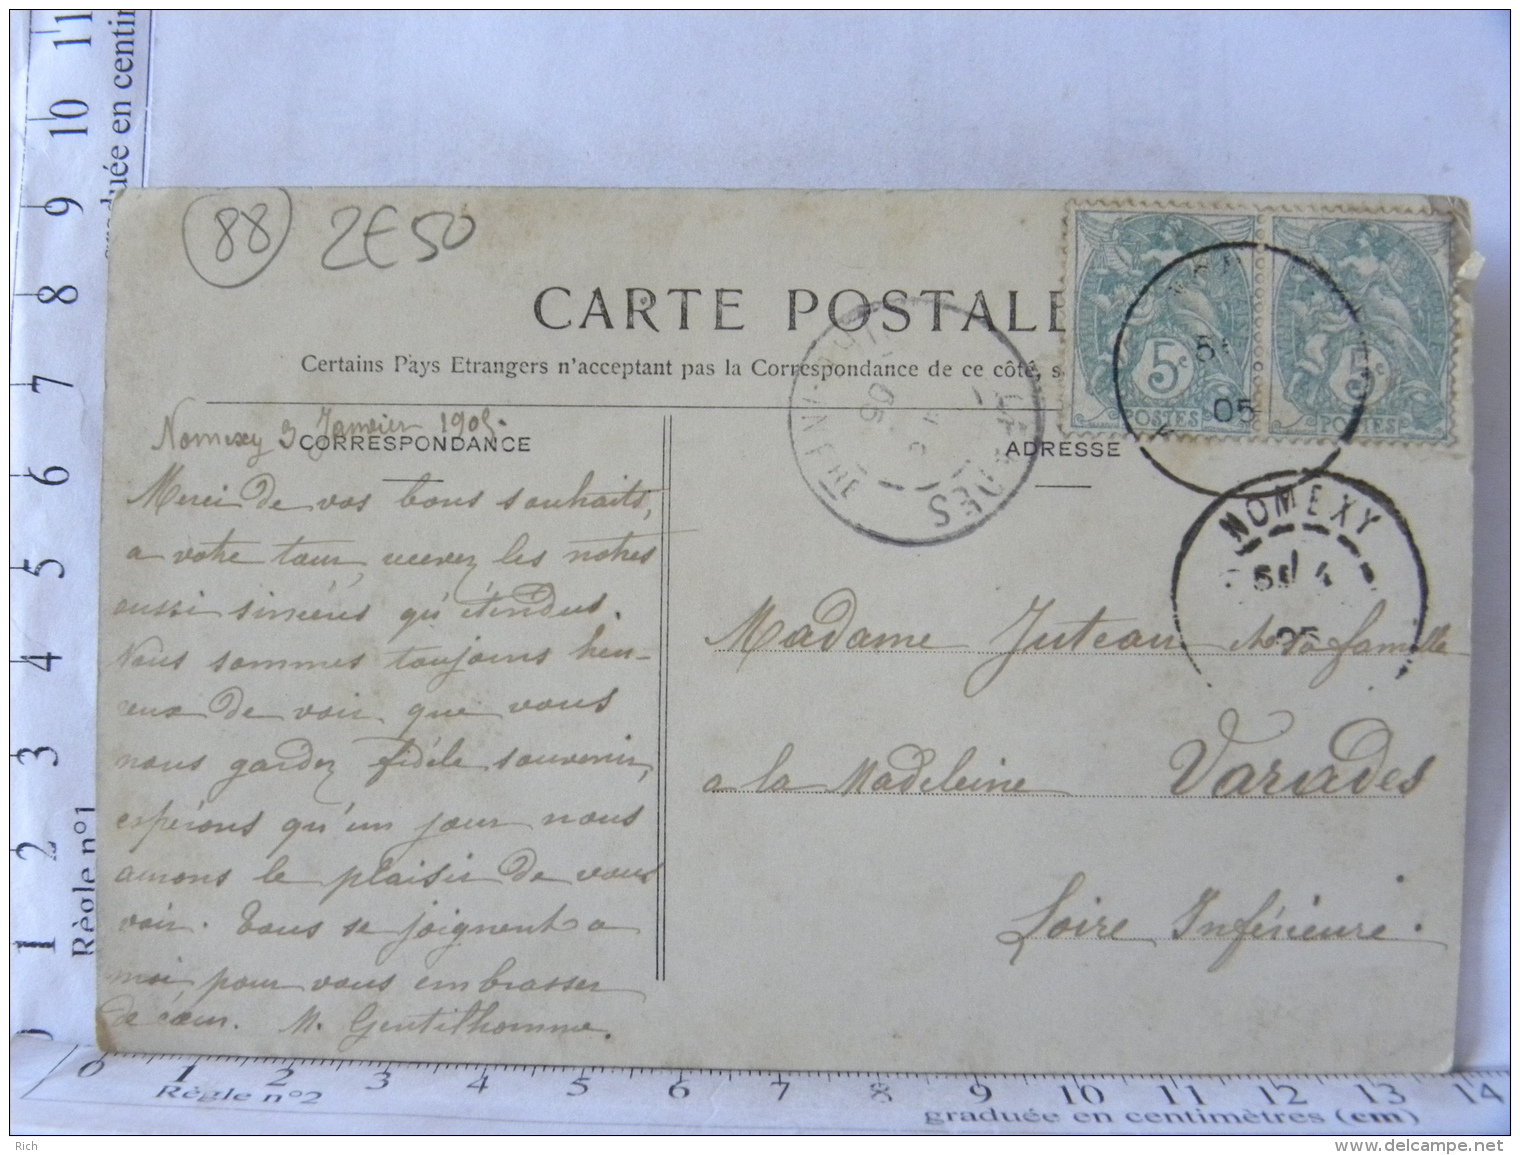 88 2E50
CARTE POSTALE
Certains Pays Etrangers n'acceptant pas la Correspondance de ce côté, s
Nomexy 3 Janvier 1905.
CORRESPONDANCE
Merci de vos bons souhaits,
a votre tour, recevez les notres
aussi sincères qu'étendus.
Nous sommes toujours heu-
reux de voir que vous
nous gardez fidèle souvenir,
espérons qu'un jour nous
aurons le plaisir de vous
voir. Tous se joignent a
moi pour vous embrasser
de cœur. M. Gentilhomme.
ADRESSE
Madame Juteau et sa famille
a la Madeleine Varades
Loire Inférieure.
5c
POSTES
5c
POSTES
05
NOMEXY
05
VARADES
05
INFRE
11
10
9
8
7
6
5
4
3
2
1
0
Règle n°1
graduée en centim
0 1 2 3 4 5 6 7 8 9 10 11 12 13 14
Règle n°2
graduée en centimètres (cm)
Rich
www.delcampe.net